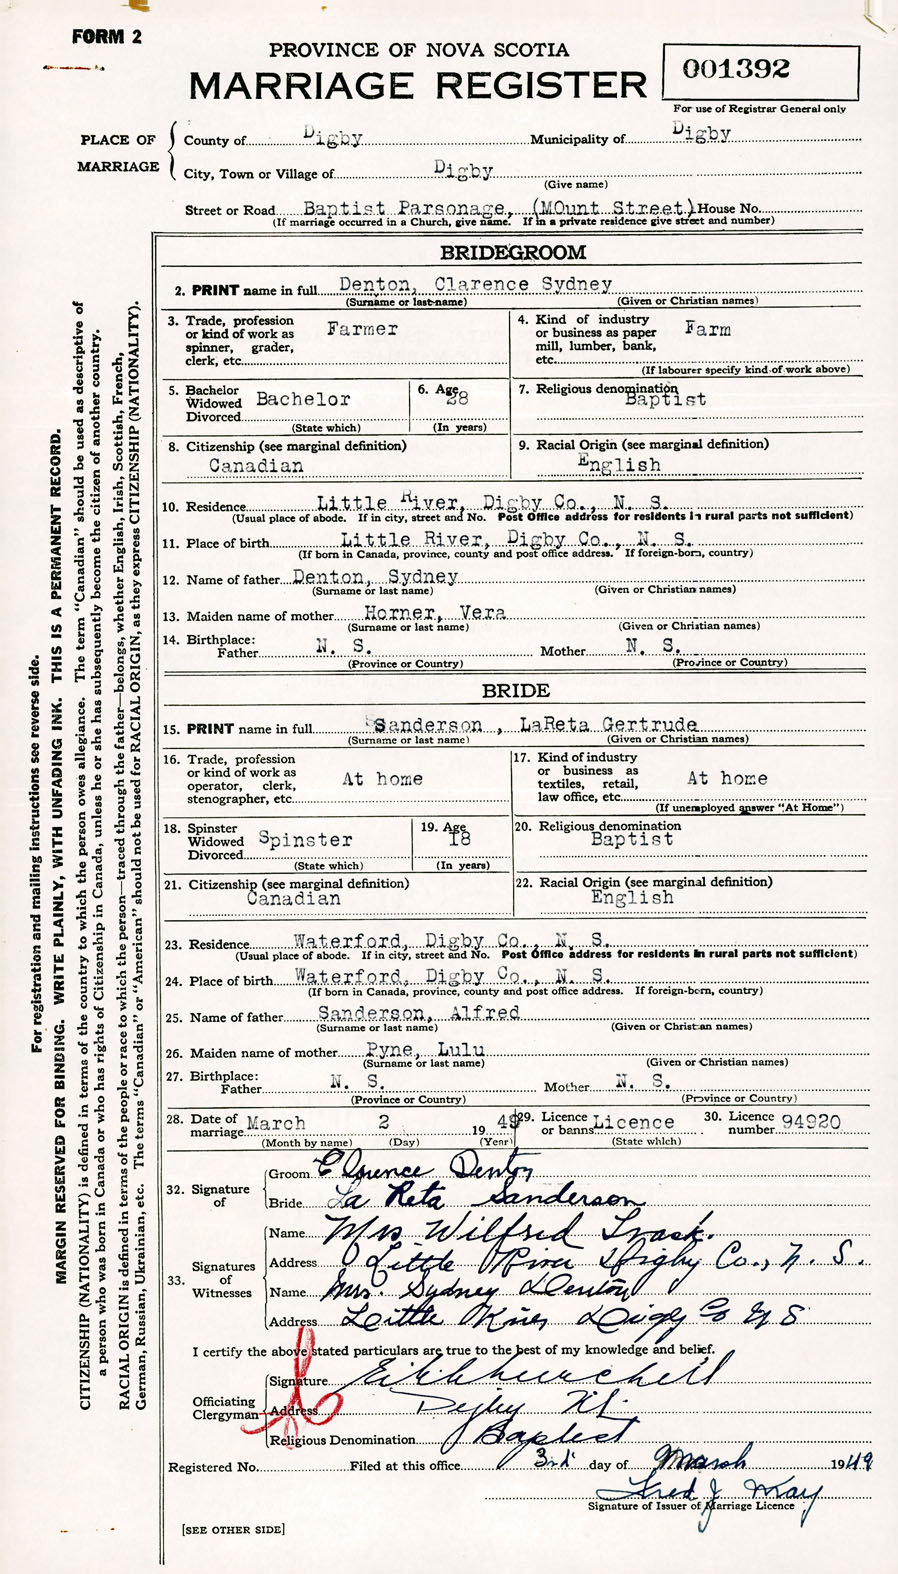 FORM 2
PROVINCE OF NOVA SCOTIA
MARRIAGE REGISTER
001392
For use of Registrar General only
PLACE OF MARRIAGE
County of Digby Municipality of Digby
City, Town or Village of Digby
(Give name)
Street or Road Baptist Parsonage, (MOunt Street) House No.
(If marriage occurred in a Church, give name. If in a private residence give street and number)
BRIDEGROOM
2. PRINT name in full Denton, Clarence Sydney
(Surname or last name) (Given or Christian names)
3. Trade, profession or kind of work as spinner, grader, clerk, etc. Farmer
4. Kind of industry or business as paper mill, lumber, bank, etc. Farm
(If labourer specify kind of work above)
5. Bachelor Widowed Divorced Bachelor
(State which)
6. Age 28
(In years)
7. Religious denomination
Baptist
8. Citizenship (see marginal definition)
Canadian
9. Racial Origin (see marginal definition)
English
10. Residence Little River, Digby Co., N. S.
(Usual place of abode. If in city, street and No. Post Office address for residents in rural parts not sufficient)
11. Place of birth Little River, Digby Co., N. S.
(If born in Canada, province, county and post office address. If foreign-born, country)
12. Name of father Denton, Sydney
(Surname or last name) (Given or Christian names)
13. Maiden name of mother Horner, Vera
(Surname or last name) (Given or Christian names)
14. Birthplace:
Father N. S. Mother N. S.
(Province or Country) (Province or Country)
BRIDE
15. PRINT name in full Sanderson , LaReta Gertrude
(Surname or last name) (Given or Christian names)
16. Trade, profession or kind of work as operator, clerk, stenographer, etc. At home
17. Kind of industry or business as textiles, retail, law office, etc. At home
(If unemployed answer "At Home")
18. Spinster Widowed Divorced Spinster
(State which)
19. Age 18
(In years)
20. Religious denomination
Baptist
21. Citizenship (see marginal definition)
Canadian
22. Racial Origin (see marginal definition)
English
23. Residence Waterford, Digby Co., N. S.
(Usual place of abode. If in city, street and No. Post Office address for residents in rural parts not sufficient)
24. Place of birth Waterford, Digby Co., N. S.
(If born in Canada, province, county and post office address. If foreign-born, country)
25. Name of father Sanderson, Alfred
(Surname or last name) (Given or Christian names)
26. Maiden name of mother Pyne, Lulu
(Surname or last name) (Given or Christian names)
27. Birthplace:
Father N. S. Mother N. S.
(Province or Country) (Province or Country)
28. Date of marriage March 2 19 49
(Month by name) (Day) (Year)
29. Licence or banns Licence
(State which)
30. Licence number 94920
32. Signature of
Groom Clarence Denton
Bride La Reta Sanderson
33. Signatures of Witnesses
Name Mrs Wilfred Trask.
Address Little River Digby Co., N. S.
Name Mrs. Sydney Denton
Address Little River Digby Co N S
I certify the above stated particulars are true to the best of my knowledge and belief.
Officiating Clergyman
Signature Churchill
Address Digby N.S.
Religious Denomination Baptist
Registered No. Filed at this office 3rd day of March 1949
Fred J. May
Signature of Issuer of Marriage Licence
[SEE OTHER SIDE]
For registration and mailing instructions see reverse side.
MARGIN RESERVED FOR BINDING. WRITE PLAINLY, WITH UNFADING INK. THIS IS A PERMANENT RECORD.
CITIZENSHIP (NATIONALITY) is defined in terms of the country to which the person owes allegiance. The term "Canadian" should be used as descriptive of
a person who was born in Canada or who has rights of Citizenship in Canada, unless he or she has subsequently become the citizen of another country.
RACIAL ORIGIN is defined in terms of the people or race to which the person—traced through the father—belongs, whether English, Irish, Scottish, French,
German, Russian, Ukrainian, etc. The terms "Canadian" or "American" should not be used for RACIAL ORIGIN, as they express CITIZENSHIP (NATIONALITY).